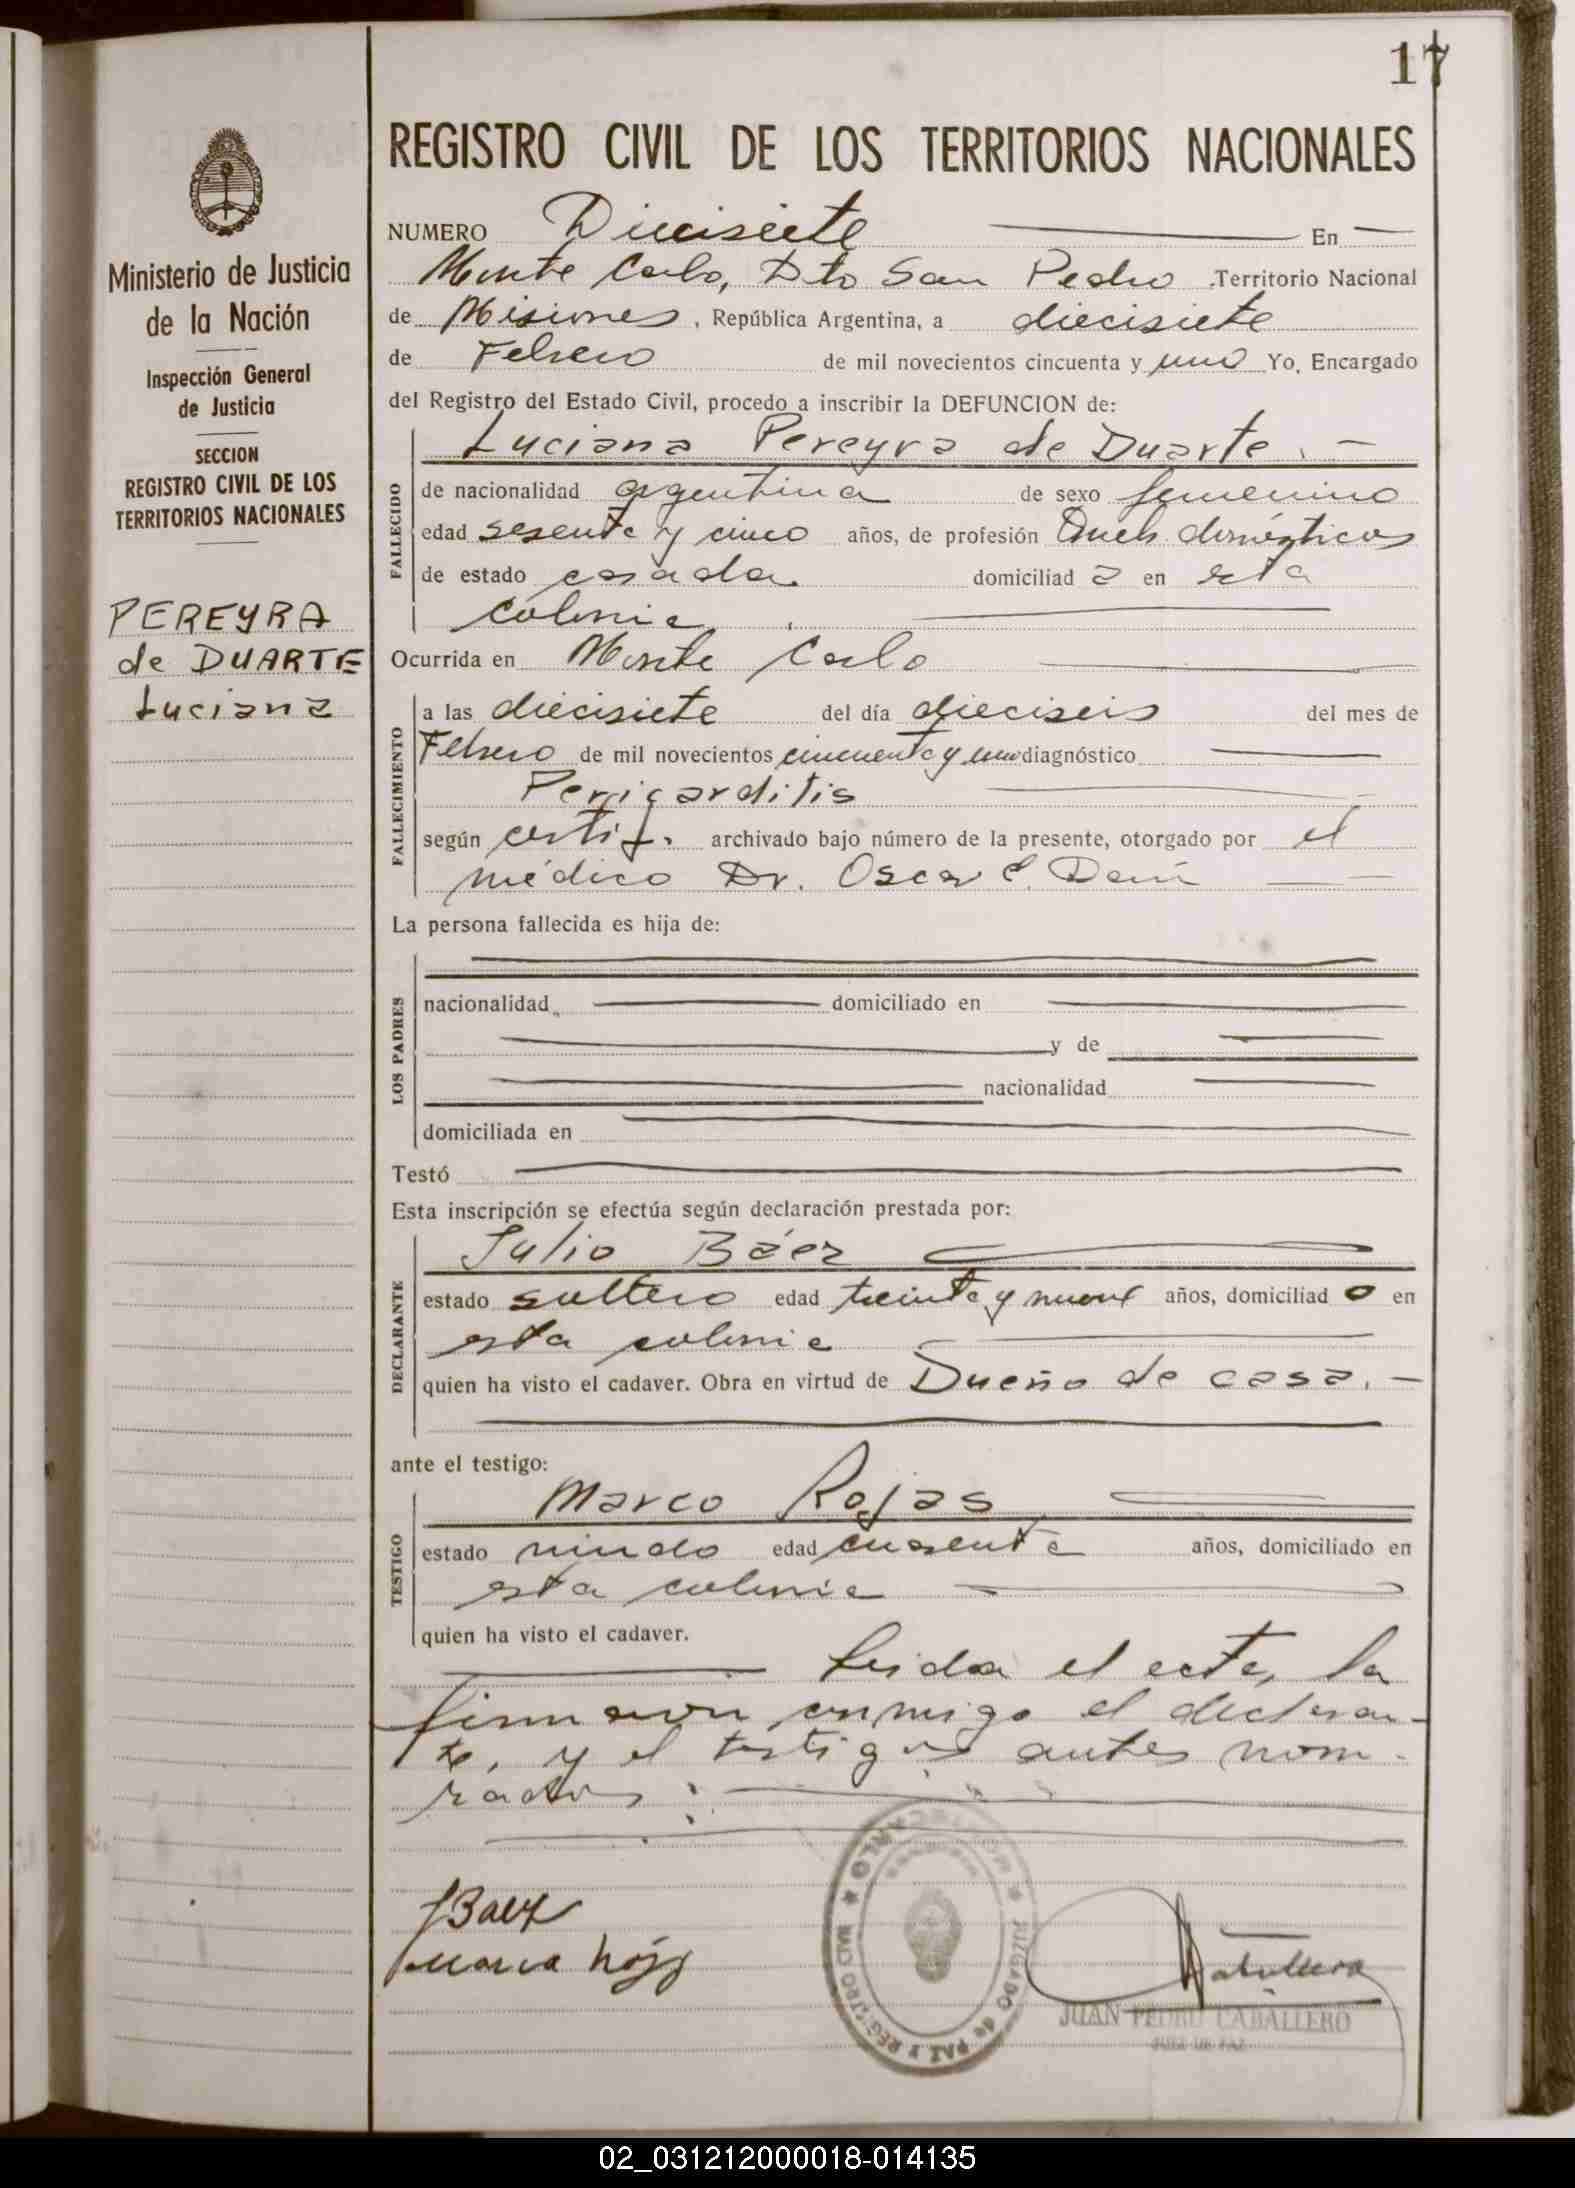 17
REGISTRO CIVIL DE LOS TERRITORIOS NACIONALES
Ministerio de Justicia
de la Nación
Inspección General
de Justicia
SECCION
REGISTRO CIVIL DE LOS
TERRITORIOS NACIONALES
PEREYRA
de DUARTE
Luciana
NUMERO Diecisiete En
Monte Carlo, Dto San Pedro Territorio Nacional
de Misiones, República Argentina, a diecisiete
de Febrero de mil novecientos cincuenta y uno Yo, Encargado
del Registro del Estado Civil, procedo a inscribir la DEFUNCION de:
Luciana Pereyra de Duarte. -
FALLECIDO
de nacionalidad argentina de sexo femenino
edad sesenta y cinco años, de profesión Queh. domésticos
de estado casada. domiciliad a en esta
colonia
Ocurrida en Monte Carlo
FALLECIMIENTO
a las diecisiete del día dieciseis del mes de
Febrero de mil novecientos cincuenta y uno diagnóstico
Pericarditis
según certif. archivado bajo número de la presente, otorgado por el
médico Dr. Oscar
La persona fallecida es hija de:
LOS PADRES
nacionalidad domiciliado en
y de
nacionalidad
domiciliada en
Testó
Esta inscripción se efectúa según declaración prestada por:
DECLARANTE
Julio Báez
estado soltero edad treinta y nueve años, domiciliad o en
esta colonia
quien ha visto el cadaver. Obra en virtud de Dueño de casa. -
ante el testigo:
TESTIGO
Marco Rojas
estado edad cuarenta años, domiciliado en
esta colonia
quien ha visto el cadaver.
Leida el acta, la
firmaron conmigo el declaran-
te, y el testigo antes nom-
rados:
JBaez
JUZGADO de PAZ Y REGISTRO
MONTECARLO
JUAN PEDRO CABALLERO
JUEZ DE PAZ
02_031212000018-014135